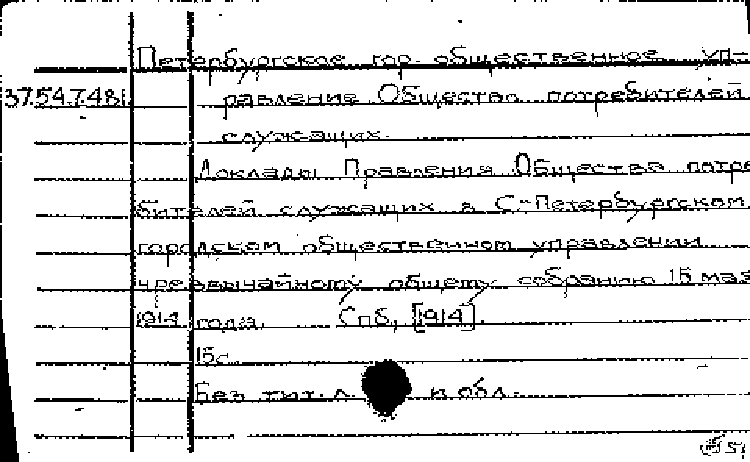 Петербургское гор. общественное уп-
37.54.7.481. равление Общество потребителей
служащих.
Доклады Правления Общества потре
бителей служащих в С-Петербургском
городском общественном управлении
чрезвычайному общему собранию 15 мая
1914 года. Спб, [1914]
15с.
Без тит. л. и обл.